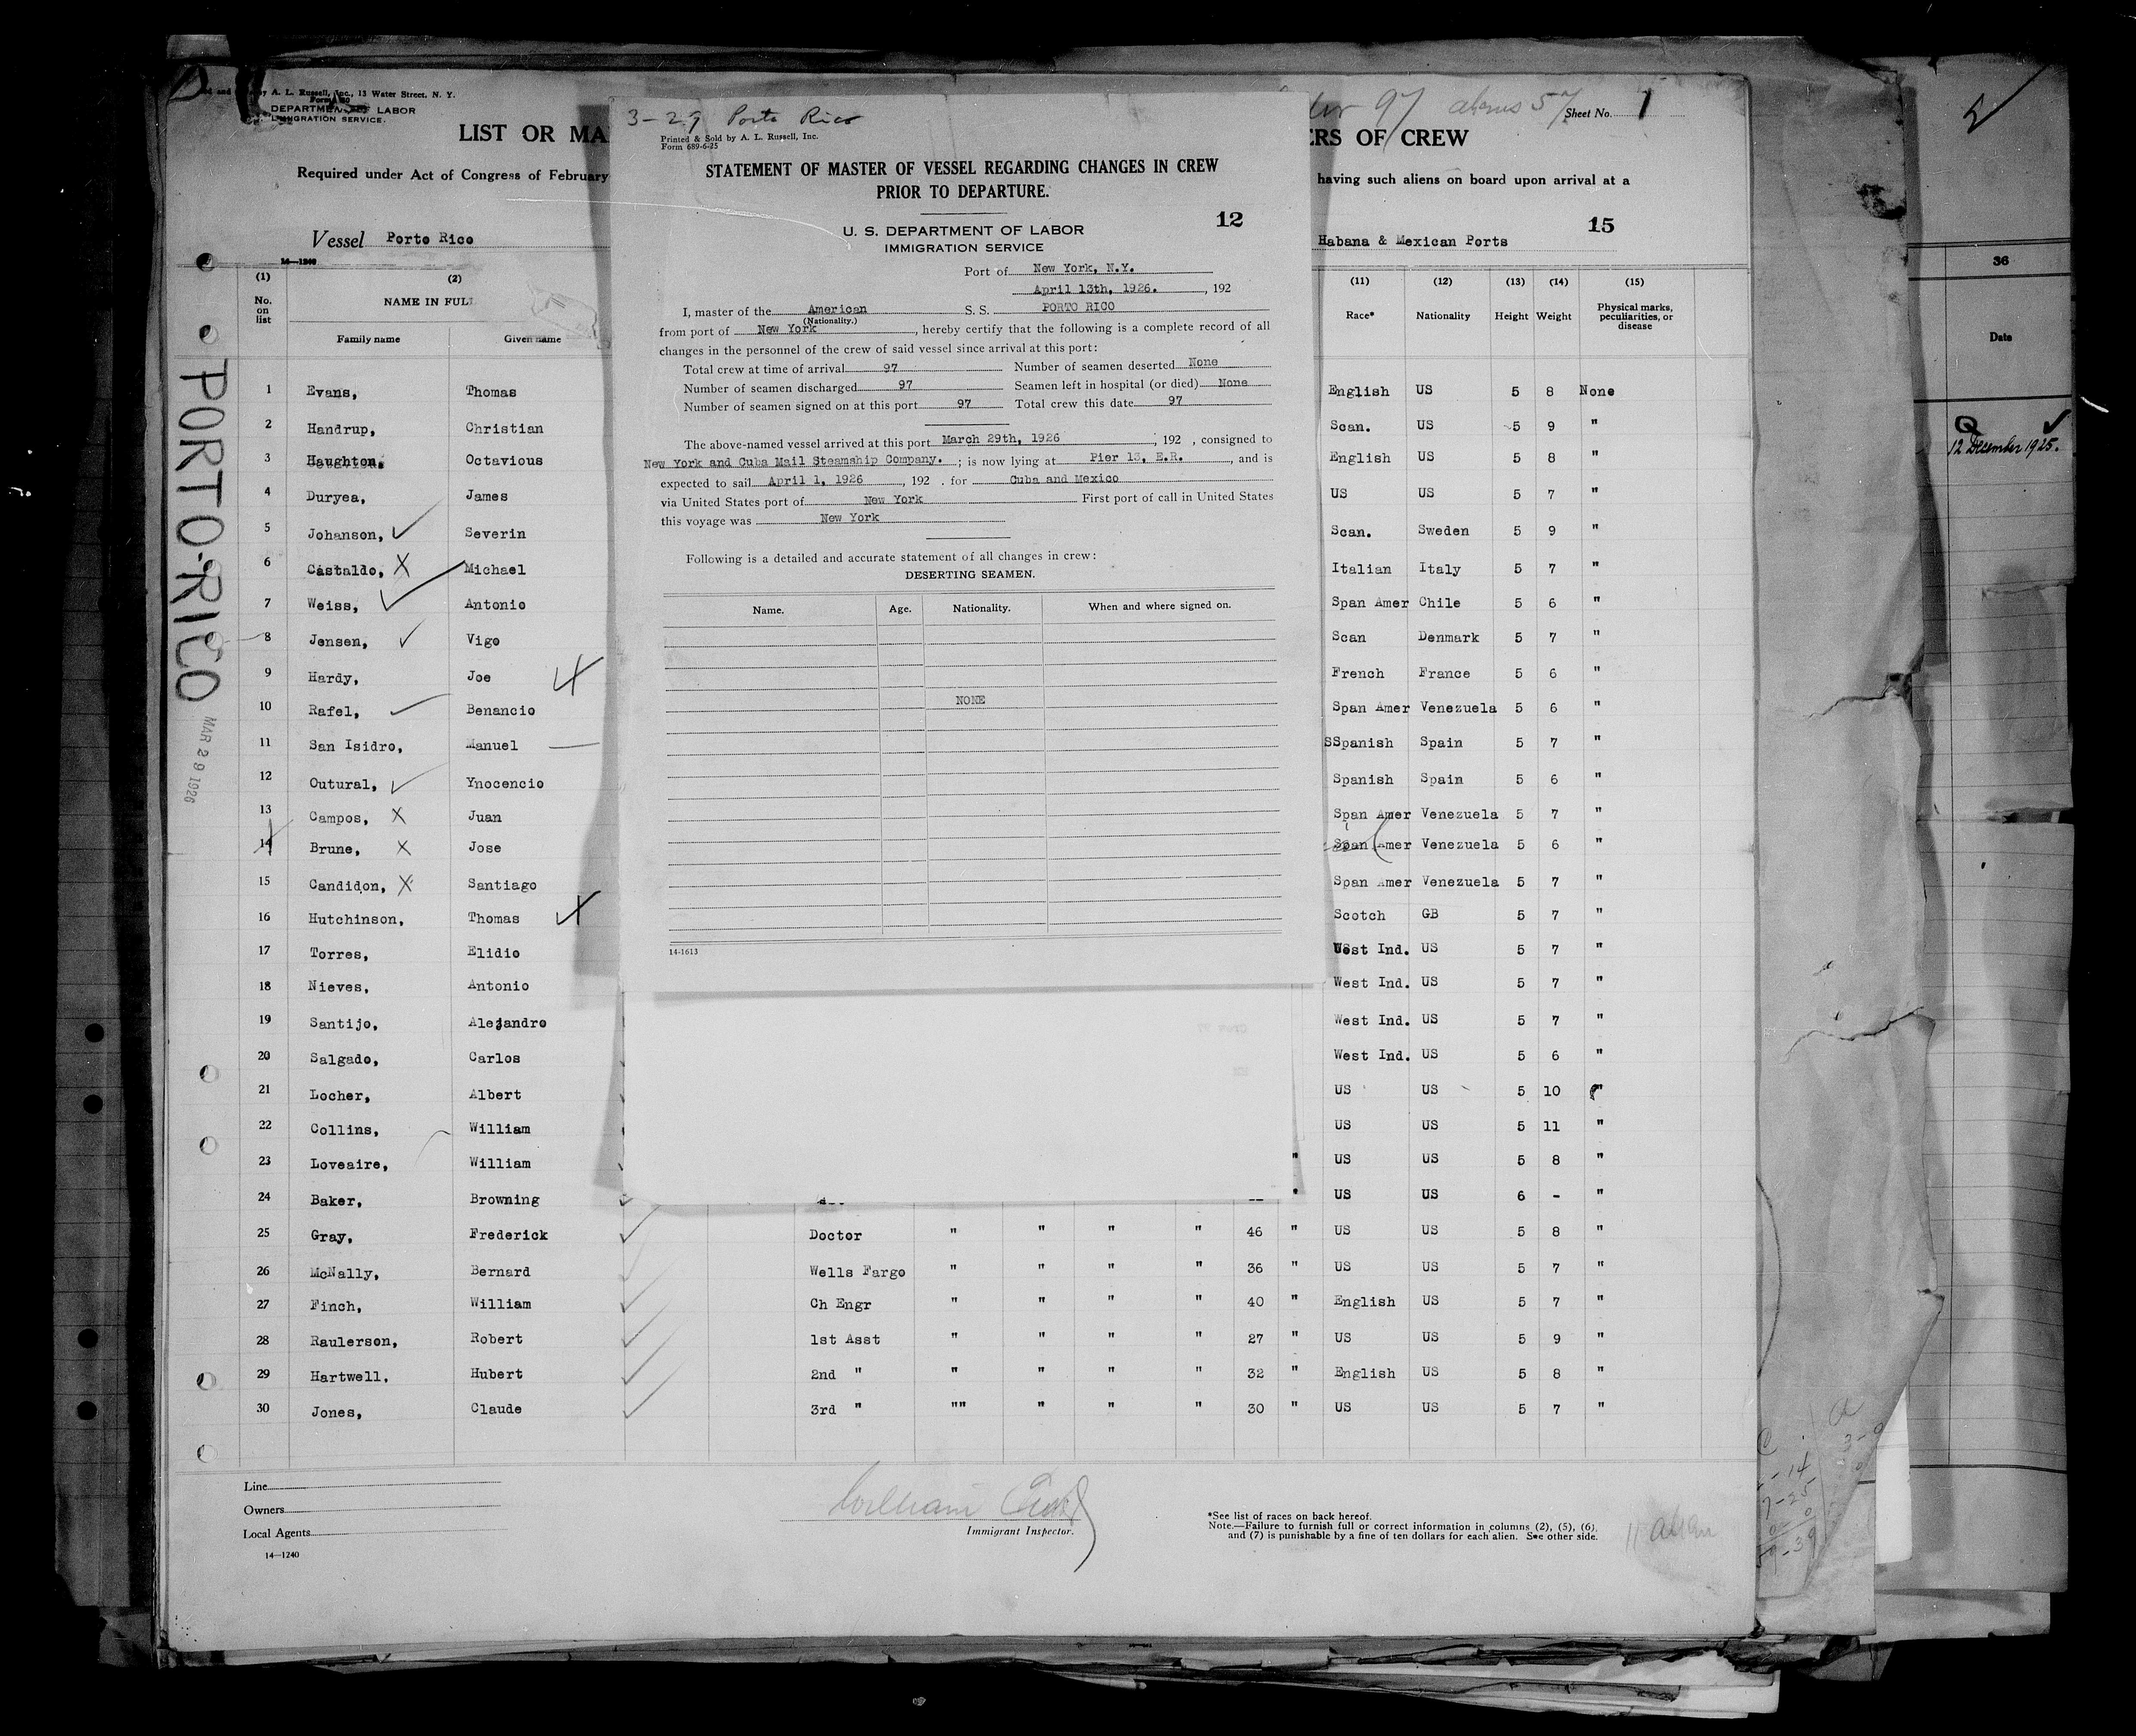 by A. L. Russell, Inc., 13 Water Street, N. Y.
DEPARTMENT LABOR
IMMIGRATION SERVICE.
LIST OR MA
Required under Act of Congress of February
Vessel Porto Rico
14—1240
PORTO-RICO
MAR 29 1926
3-29 Porto Rico
Printed & Sold by A. L. Russell, Inc.
Form 689-6-25
STATEMENT OF MASTER OF VESSEL REGARDING CHANGES IN CREW
PRIOR TO DEPARTURE.
12
U. S. DEPARTMENT OF LABOR
IMMIGRATION SERVICE
Port of New York, N.Y.
April 13th, 1926. , 192
I, master of the American S. S. PORTO RICO
(Nationality.)
from port of New York , hereby certify that the following is a complete record of all
changes in the personnel of the crew of said vessel since arrival at this port:
Total crew at time of arrival 97 Number of seamen deserted None
Number of seamen discharged 97 Seamen left in hospital (or died) None
Number of seamen signed on at this port 97 Total crew this date 97
The above-named vessel arrived at this port March 29th, 1926 , 192 , consigned to
New York and Cuba Mail Steamship Company. ; is now lying at Pier 13, E.R. , and is
expected to sail April 1, 1926 , 192 . for Cuba and Mexico
via United States port of New York First port of call in United States
this voyage was New York
Following is a detailed and accurate statement of all changes in crew:
DESERTING SEAMEN.
Name. Age. Nationality. When and where signed on.
NONE
14-1613
97 aliens 57
Sheet No. 1
ERS OF CREW
having such aliens on board upon arrival at a
15
Habana & Mexican Ports
(1) (2) (11) (12) (13) (14) (15)
No. on list NAME IN FULL Race* Nationality Height Weight Physical marks, peculiarities, or disease
Family name Given name
1 Evans, Thomas English US 5 8 None
2 Handrup, Christian Scan. US 5 9 "
3 Haughton, Octavious English US 5 8 "
4 Duryea, James US US 5 7 "
5 Johanson, Severin Scan. Sweden 5 9 "
6 Castaldo, Michael Italian Italy 5 7 "
7 Weiss, Antonio Span Amer Chile 5 6 "
8 Jensen, Vigo Scan Denmark 5 7 "
9 Hardy, Joe French France 5 6 "
10 Rafel, Benancio Span Amer Venezuela 5 6 "
11 San Isidro, Manuel SSpanish Spain 5 7 "
12 Outural, Ynocencio Spanish Spain 5 6 "
13 Campos, Juan Span Amer Venezuela 5 7 "
14 Brune, Jose Span Amer Venezuela 5 6 "
15 Candidon, Santiago Span Amer Venezuela 5 7 "
16 Hutchinson, Thomas Scotch GB 5 7 "
17 Torres, Elidio West Ind. US 5 7 "
18 Nieves, Antonio West Ind. US 5 7 "
19 Santijo, Alejandro West Ind. US 5 7 "
20 Salgado, Carlos West Ind. US 5 6 "
21 Locher, Albert US US 5 10 "
22 Collins, William US US 5 11 "
23 Loveaire, William " US US 5 8 "
24 Baker, Browning " US US 6 - "
25 Gray, Frederick Doctor " " " " 46 " US US 5 8 "
26 McNally, Bernard Wells Fargo " " " " 36 " US US 5 7 "
27 Finch, William Ch Engr " " " " 40 " English US 5 7 "
28 Raulerson, Robert 1st Asst " " " " 27 " US US 5 9 "
29 Hartwell, Hubert 2nd " " " " " 32 " English US 5 8 "
30 Jones, Claude 3rd " "" " " " 30 " US US 5 7 "
Line
Owners
Local Agents
14—1240
William
Immigrant Inspector.
*See list of races on back hereof.
Note.—Failure to furnish full or correct information in columns (2), (5), (6),
and (7) is punishable by a fine of ten dollars for each alien. See other side.
11 alien
36
Date
Q
12 December 1925.